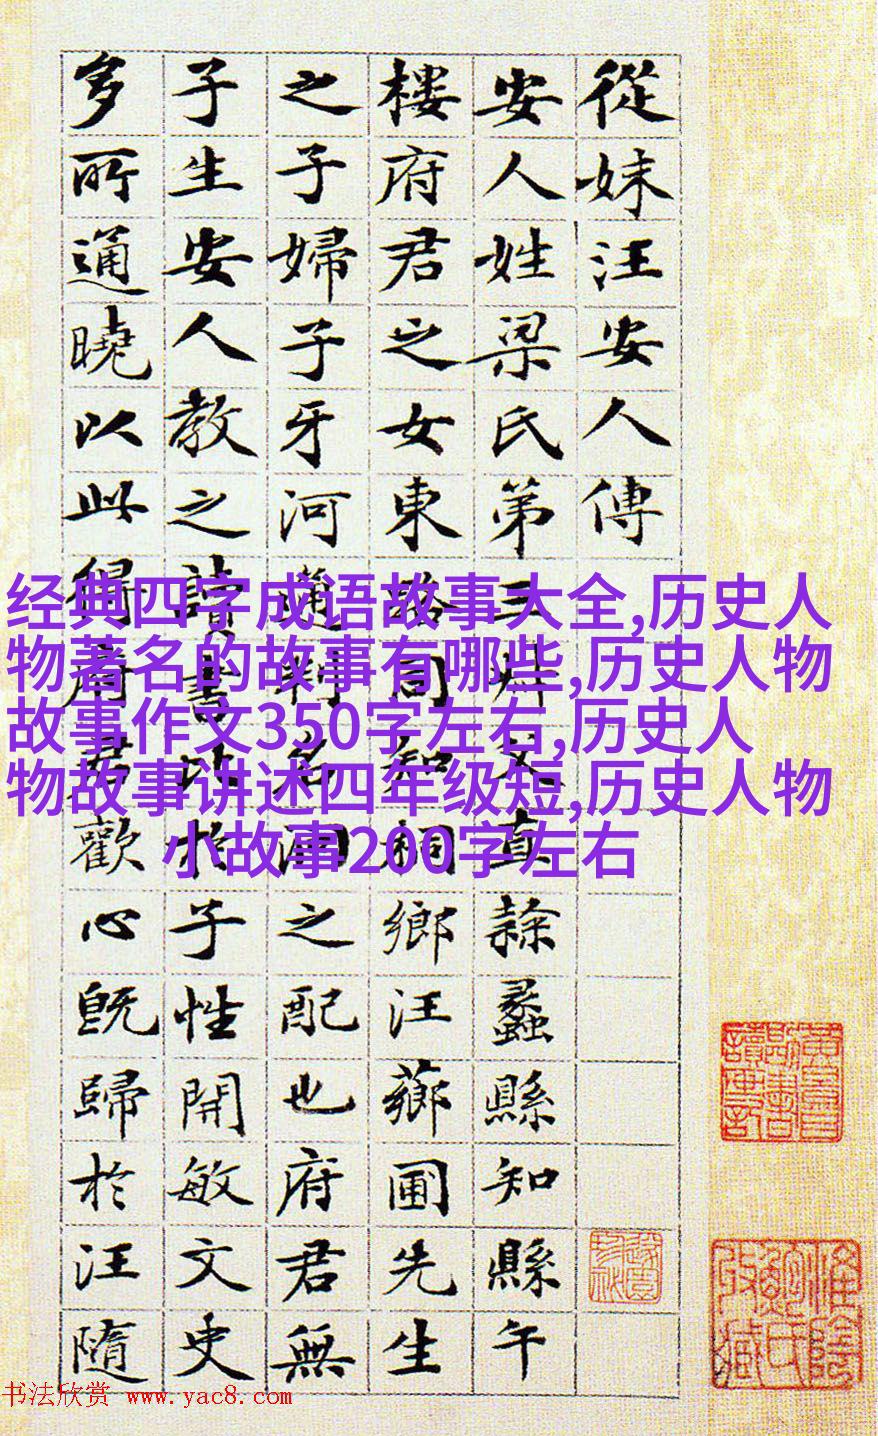 從妹汪安人傳
安人姓梁氏第三父直隸蠡縣知縣午
樓府君之女東路同知桐鄉汪薌圃先生
之子婦子牙河通判名之配也府君無
子生安人教之讀書於子性開敏文史
多所通曉以此得府君歡心既歸於汪隨
经典四字成语故事大全,历史人
物著名的故事有哪些,历史人物
故事作文350字左右,历史人
物故事讲述四年级短,历史人物
小故事200字左右
书法欣赏 www.yac8.com